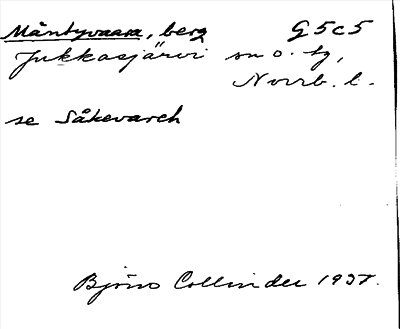 Mäntyvaara, berg G5c5
Jukkasjärvi sn o. tg,
Norrb. l.
se Såkevarch
Björn Collinder 1937.